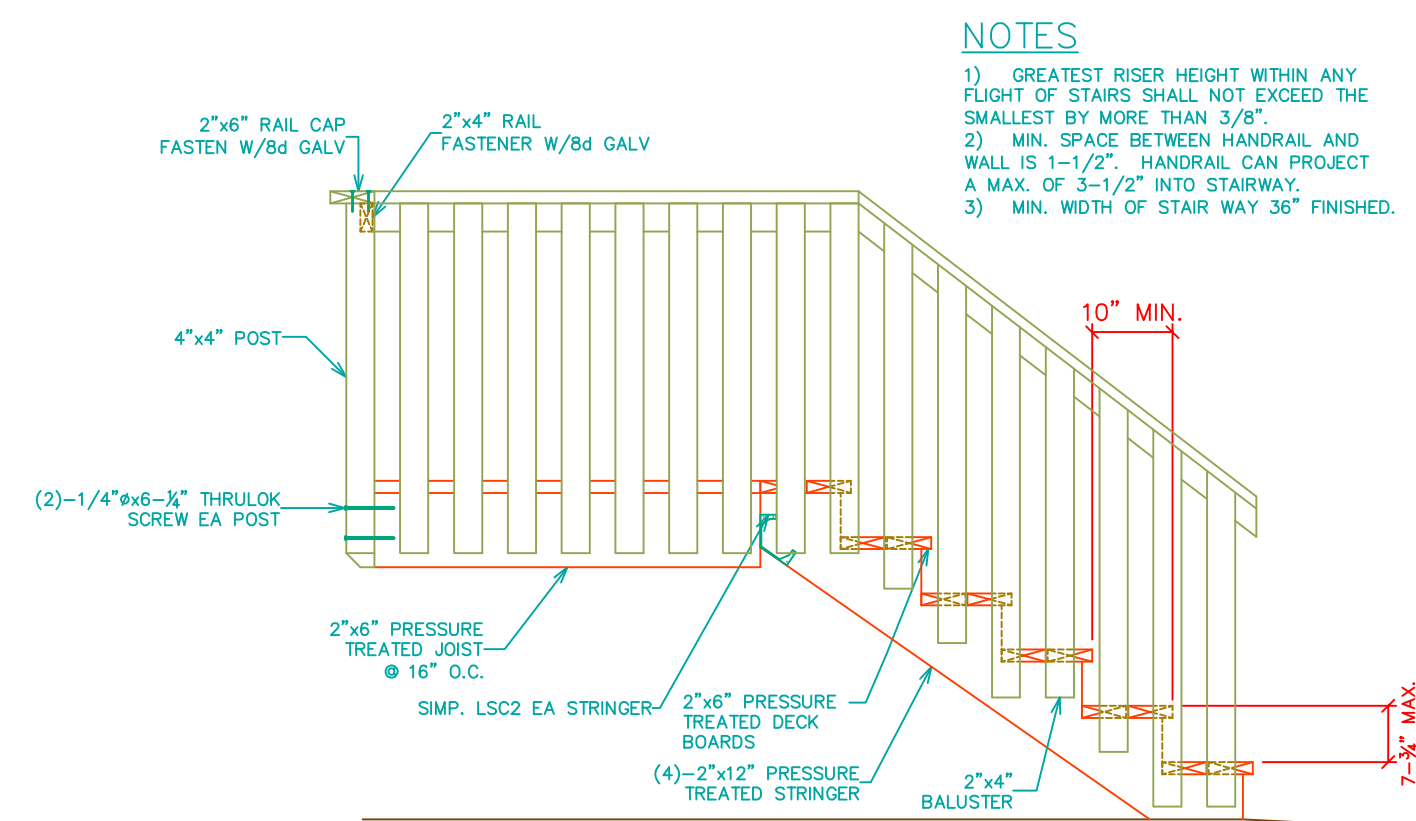 NOTES
1) GREATEST RISER HEIGHT WITHIN ANY
FLIGHT OF STAIRS SHALL NOT EXCEED THE
SMALLEST BY MORE THAN 3/8”.
2) MIN. SPACE BETWEEN HANDRAIL AND
WALL IS 1–1/2”. HANDRAIL CAN PROJECT
A MAX. OF 3–1/2” INTO STAIRWAY.
3) MIN. WIDTH OF STAIR WAY 36” FINISHED.
2”x6” RAIL CAP
FASTEN W/8d GALV
2”x4” RAIL
FASTENER W/8d GALV
10” MIN.
4”x4” POST
(2)–1/4”øx6–¼” THRULOK
SCREW EA POST
2”x6” PRESSURE
TREATED JOIST
@ 16” O.C.
SIMP. LSC2 EA STRINGER
2”x6” PRESSURE
TREATED DECK
BOARDS
(4)–2”x12” PRESSURE
TREATED STRINGER
2”x4”
BALUSTER
7–¾” MAX.